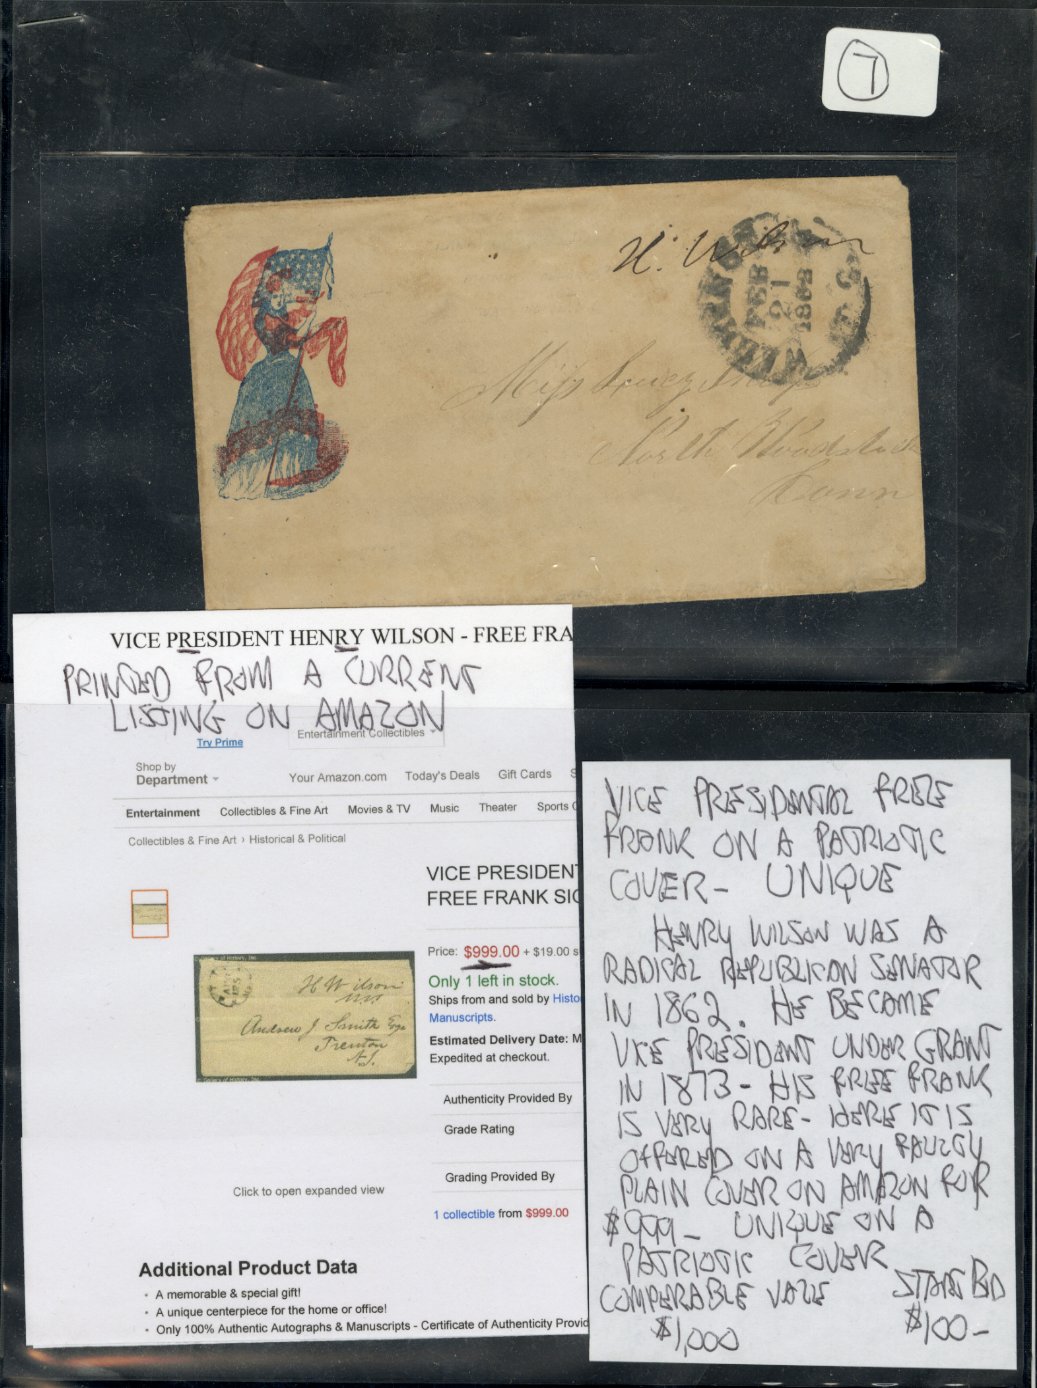 7
H. Wilson
WASHINGTON D.C.
FEB
21
1863
Miss Lucy
North Woodstock
Conn
VICE PRESIDENT HENRY WILSON - FREE FRA
PRINTED FROM A CURRENT
LISTING ON AMAZON
Try Prime
Entertainment Collectibles
Shop by
Department
Your Amazon.com Today's Deals Gift Cards S
Entertainment Collectibles & Fine Art Movies & TV Music Theater Sports C
Collectibles & Fine Art › Historical & Political
VICE PRESIDENT
FREE FRANK SIG
Price: $999.00 + $19.00 s
Only 1 left in stock.
Ships from and sold by Histo
Manuscripts.
Estimated Delivery Date: M
Expedited at checkout.
Authenticity Provided By
Grade Rating
Grading Provided By
1 collectible from $999.00
H Wilson
Andrew J. Smith Esq
Trenton
N.J.
Click to open expanded view
Additional Product Data
• A memorable & special gift!
• A unique centerpiece for the home or office!
• Only 100% Authentic Autographs & Manuscripts - Certificate of Authenticity Provid
VICE PRESIDENTIAL FREE
FRANK ON A PATRIOTIC
COVER - UNIQUE
HENRY WILSON WAS A
RADICAL REPUBLICAN SENATOR
IN 1862. HE BECAME
VICE PRESIDENT UNDER GRANT
IN 1873 - HIS FREE FRANK
IS VERY RARE - HERE IT IS
OFFERED ON A VERY FAULTY
PLAIN COVER ON AMAZON FOR
$999 - UNIQUE ON A
PATRIOTIC COVER
COMPERABLE VALUE
$1,000
START BID
$100-